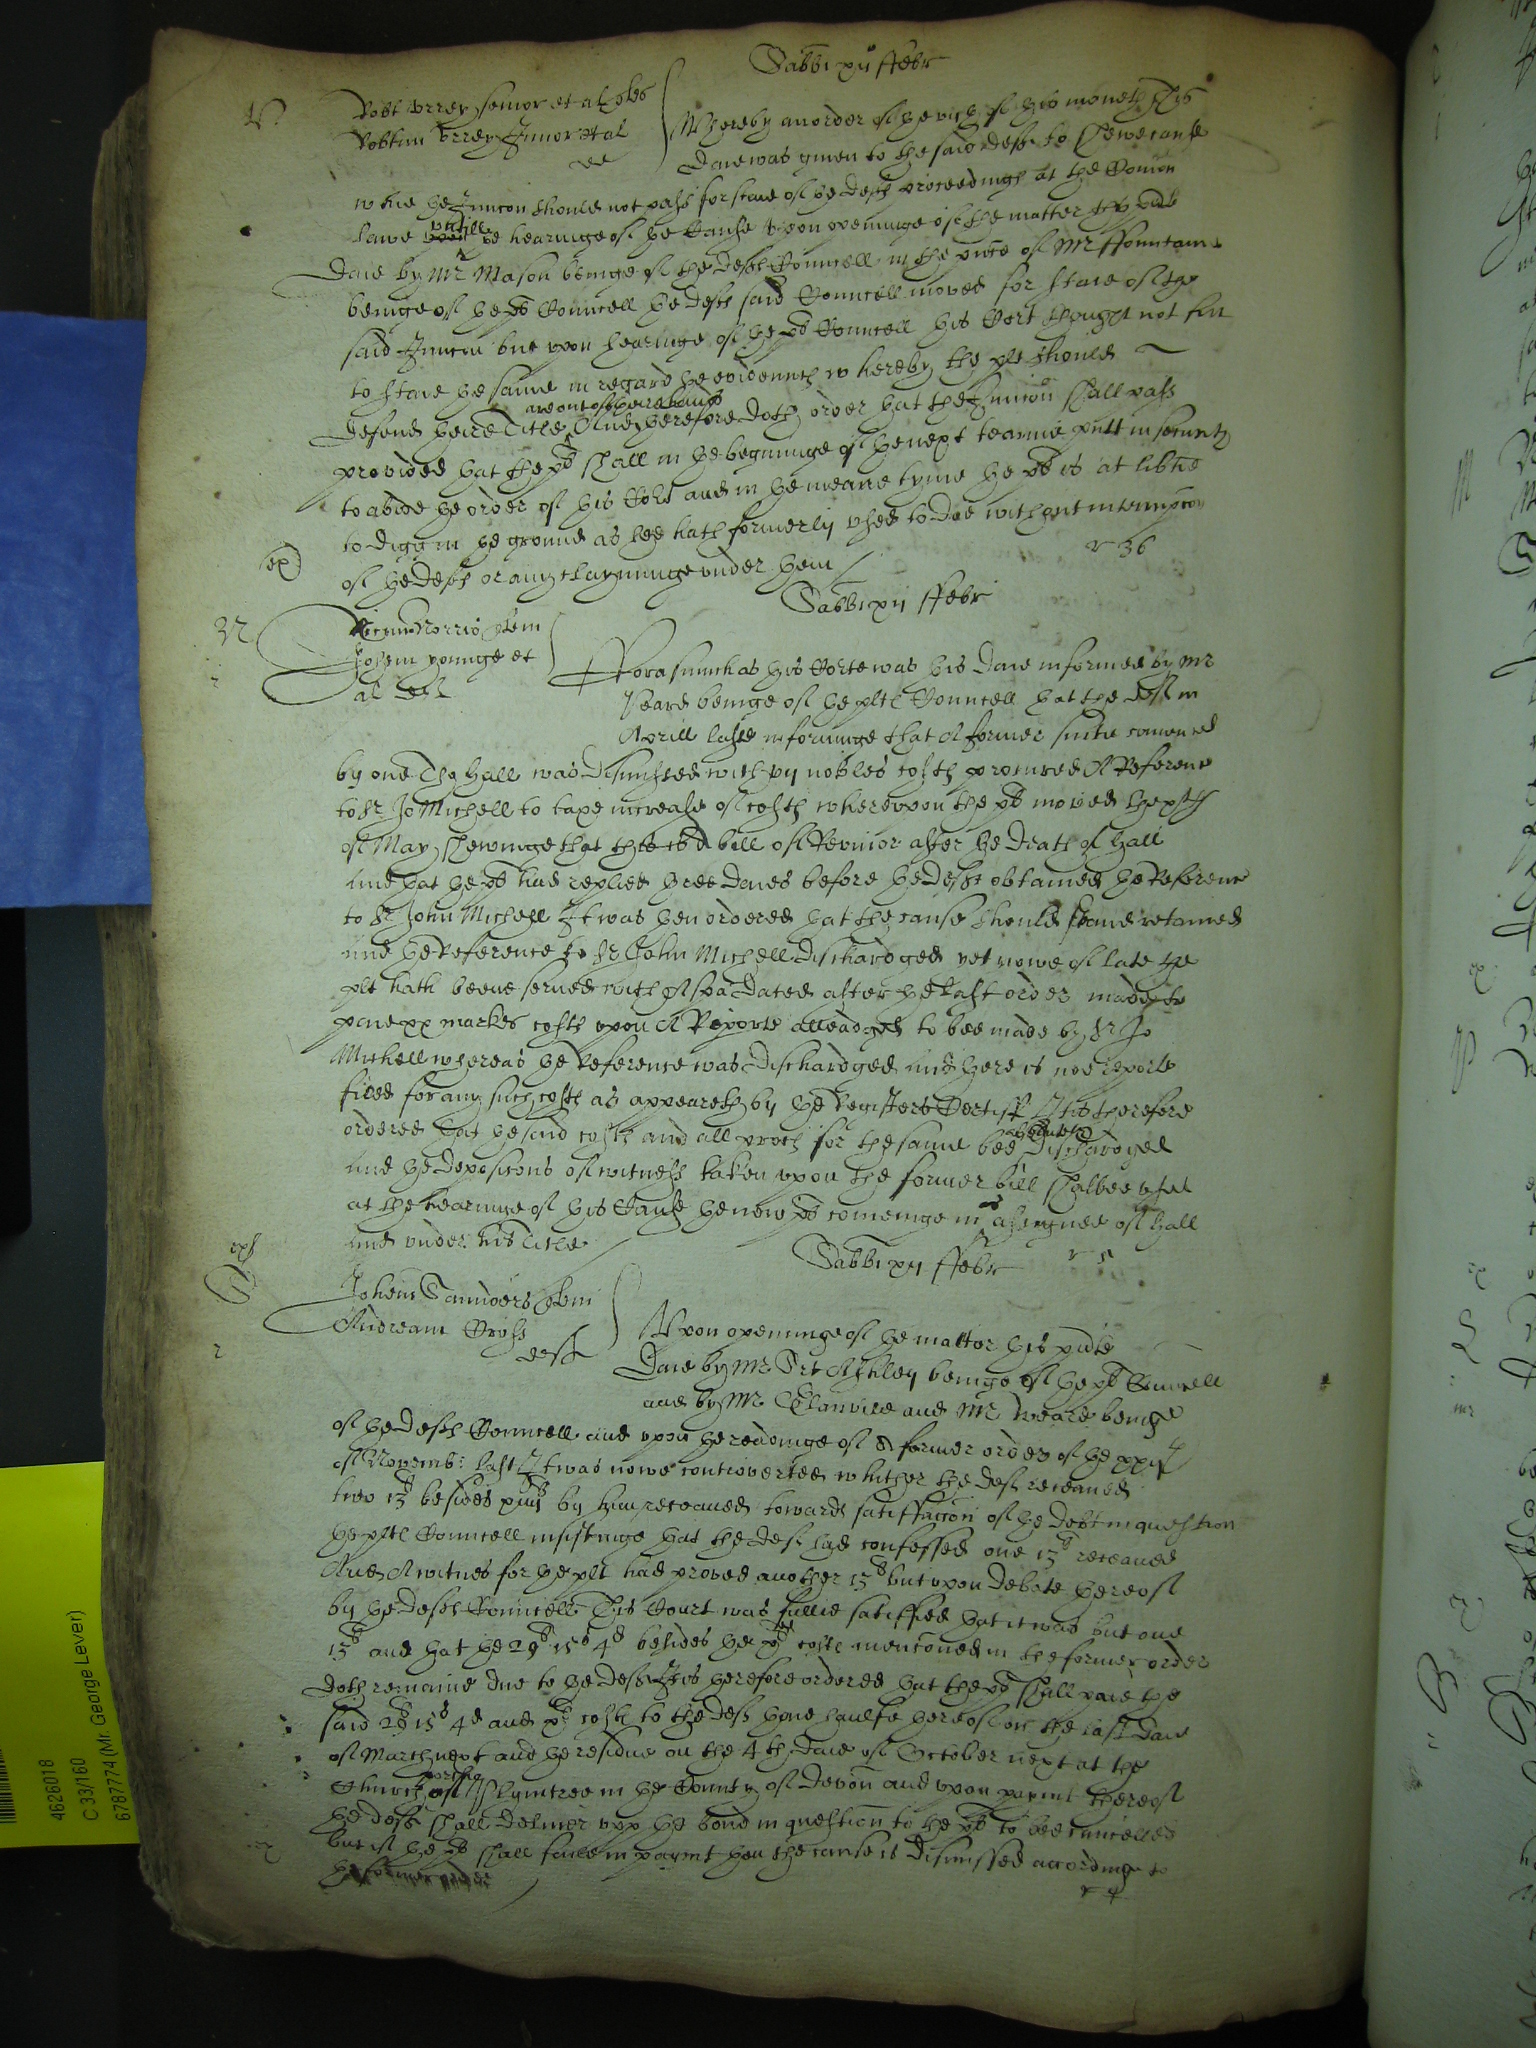 Sabbi xii ffebr
V
Robt Vrrey senior et al ples
Robtum Vrrey Junior et al
Whereby an order of the vith of this moneth this
daie was given to the said deftes to shewe cause
whie the Iniuncon should not passe for staie of the deftes proceedings at the Comon
lawe vntill the hearinge of the cause vpon openinge of the matter this pnte
daie by Mr Mason beinge of the deftes Councell in the pnce of Mr ffountaine
beinge of the plts Councell the deftes said Councell moved for staie of the
said Iniuncon but vpon hearinge of the plts Councell this Cort thought not fitt
to staie the same in regard the evidences whereby the plts should
defend theire Title are out of theire hands And therefore doth order that the Iniuncon shall passe
provided that the plt shall in the beginninge of the next tearme putt in security
to abide the order of this Cort and in the meane tyme the plt is at libtie
to digg in the ground as hee hath formerly vsed to doe without interrupcon
of the deftes or any clayminge vnder them
ex
r 36
Sabbi xii ffebr
N
Norris plem
Johem younge et
al deft
fforasmuch as this Corte was this daie informed by Mr
beinge of the plts Councell that the deft in
Aprill last informinge that A former suite comenced
by one Tho Hall was dismissed with vii nobles costs procured A Reference
to Sr Jo Michell to taxe increase of costs wherevpon the plt moved the
of May shewinge that this is A bill of Revivor after the death of Hall
and that the plt had replied three daies before the deft obtained the Reference
to Sr John Michell It was then ordered that the cause should stand retained
and the Reference to Sr John Michell dischardged yet nowe of late the
plt hath beene served with A spa dated after the last order made to
paie xx markes costs vpon A Reporte alleadged to bee made by Sr Jo
Michell whereas the Reference was dischardged and there is noe reporte
filed for any such costs as appeareth by the Registers Certiff It is therefore
ordered that the said costs and all proces for the same bee absolutely dischardged
and the deposicons of witness taken vpon the former bill shalbee vsed
at the hearinge of this cause the now plt cominge in as assignee of Hall
and vnder his Title
exr
Sabbi xii ffebr
S
Johem Saunders plem
Andream Crosse
deft
Vpon openinge of the matter this pnte
daie by Mr Srt Ashley beinge of the plts Councell
and by Mr Glanvile and Mr Weare beinge
of the deftes Councell and vpon the readinge of A former order of the
of Novemb: last It was nowe controverted whither the deft receaved
two 15l besides by him receaved towards satisfaccon of the debt in question
the plts Councell insistinge that the deft had confessed one 15l receaved
And A witnes for the plt had proved another 15l but vpon debate thereof
by the deftes Councell This Court was fullie satisfied that it was but one
15l and that the 29l 15s 4d besides the costs mencioned in the former order
doth remaine due to the deft It is therefore ordered that the plt shall paie the
said 29l 15s 4d and costs to the deft thone haulfe thereof on the last daie
of March next and the residue on the 4th daie of October next at the
Church porche of Plymtree in the County of Devon and vpon paymt thereof
the deft shall deliver vpp the bond in question to the plt to bee cancelled
but if the plt shall faile in paymt then the cause is dismissed accordinge to
the former order
4626018
C 33/160
6787774 (Mr. George Lever)